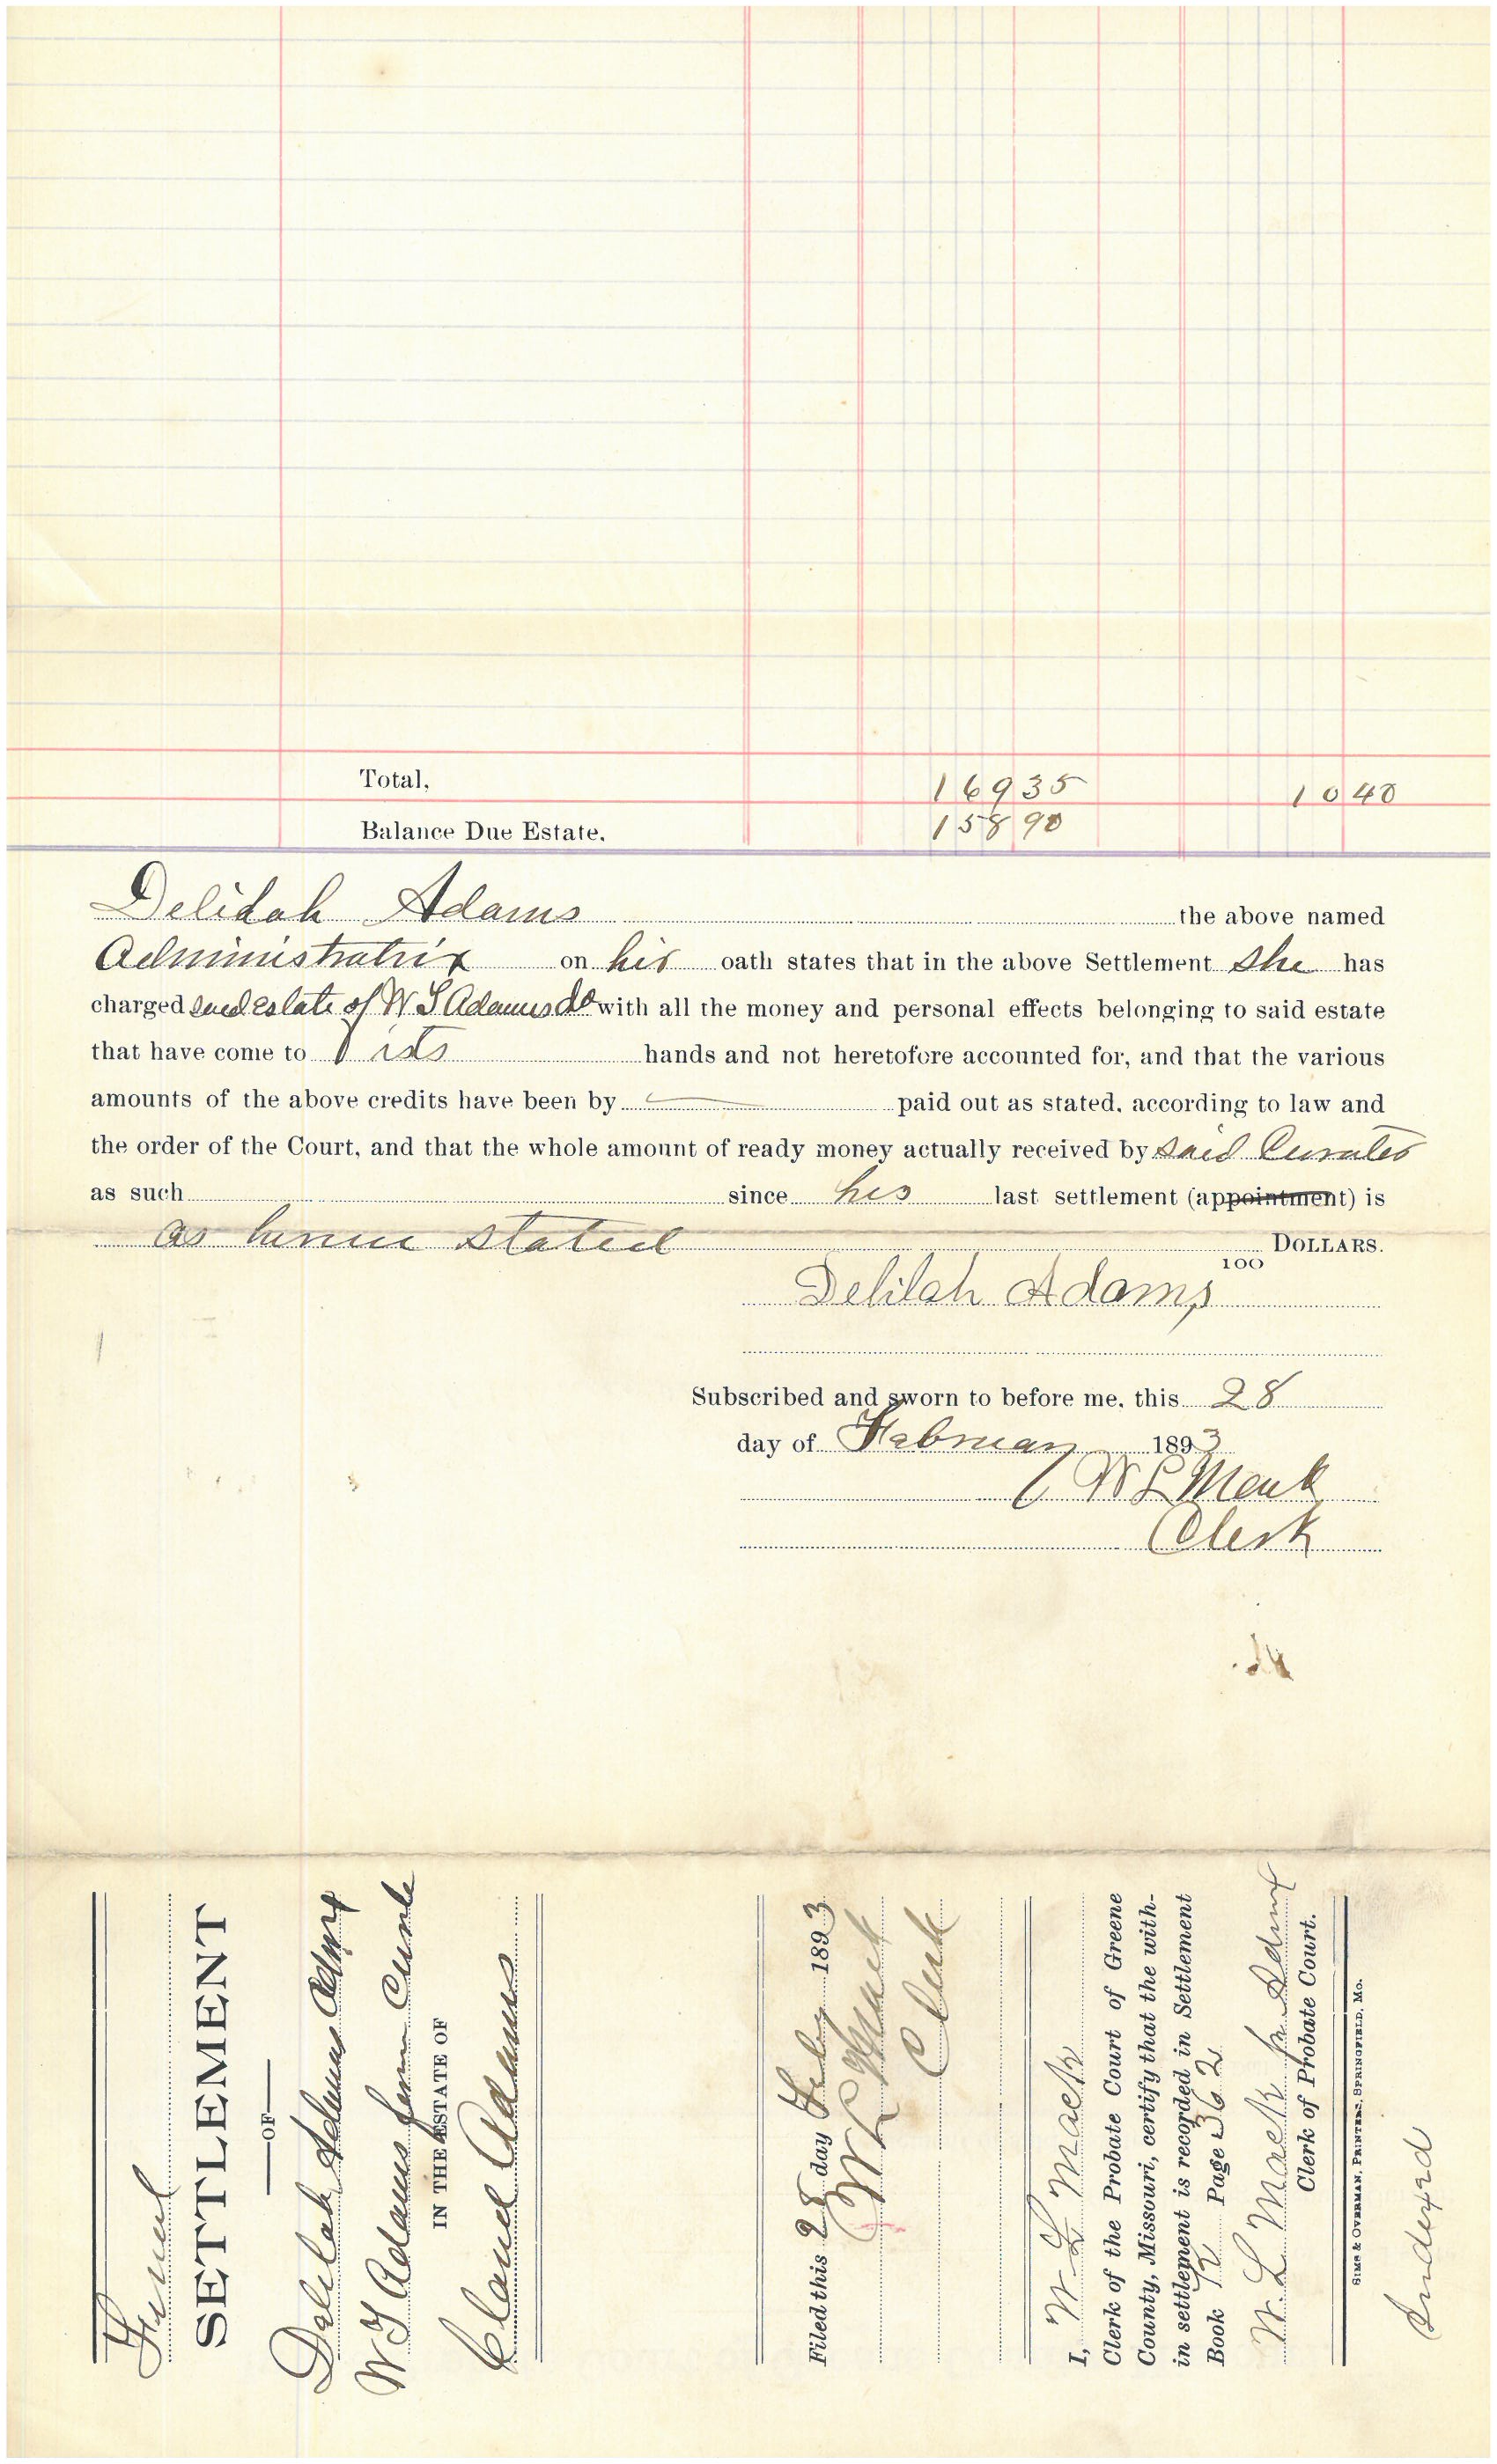 Total, 169 35 10 40
Balance Due Estate. 158 90
Delidah Adams the above named
Administratrix on his oath states that in the above Settlement she has
charged said estate of W T Adams with all the money and personal effects belonging to said estate
that have come to his hands and not heretofore accounted for, and that the various
amounts of the above credits have been by paid out as stated, according to law and
the order of the Court, and that the whole amount of ready money actually received by said Curator
as such since his last settlement (appointment) is
as herein stated 100 DOLLARS.
Delilah Adams
Subscribed and sworn to before me, this 28
day of Februay 1893
W L Mack
Clerk
Final
SETTLEMENT
OF
Delilah Adams Admx
W T Adams form Curatr
IN THE ESTATE OF
Claud Adams
Filed this 28 day Feby 1893
W L Mack
Clerk
I, W L Mack
Clerk of the Probate Court of Greene
County, Missouri, certify that the with-
in settlement is recorded in Settlement
Book Page 362
W. L Mack
Clerk of Probate Court.
SIMS & OVERMAN, PRINTERS, SPRINGFIELD, MO.
Indexed